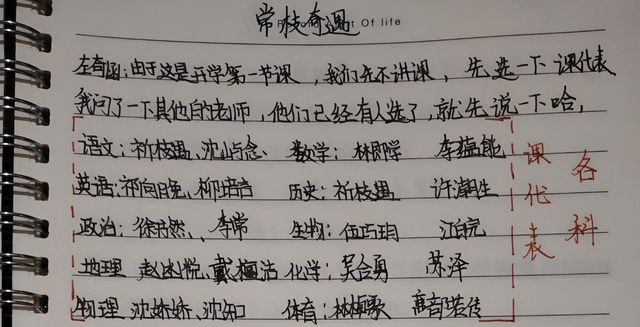 常枝奇遇
Of life
左奇函:由于这是开学第一节课,我们先不讲课,先选一下课代表
我问了一下其他的老师,他们已经有人选了,就先说一下哈,
语文:祈枝遇、沈山念、数学:林 学 李蕴能
英语:祁向晚、柳 言 历史:祈枝遇 许潮生
政治:徐 然、李常 生物:伍巧玥 江白皖
地理 赵 悦、戴 沽 化学:吴合勇 苏泽
物理 沈娇娇、沈知 体育:林 歌 高音 传
各科
课代表